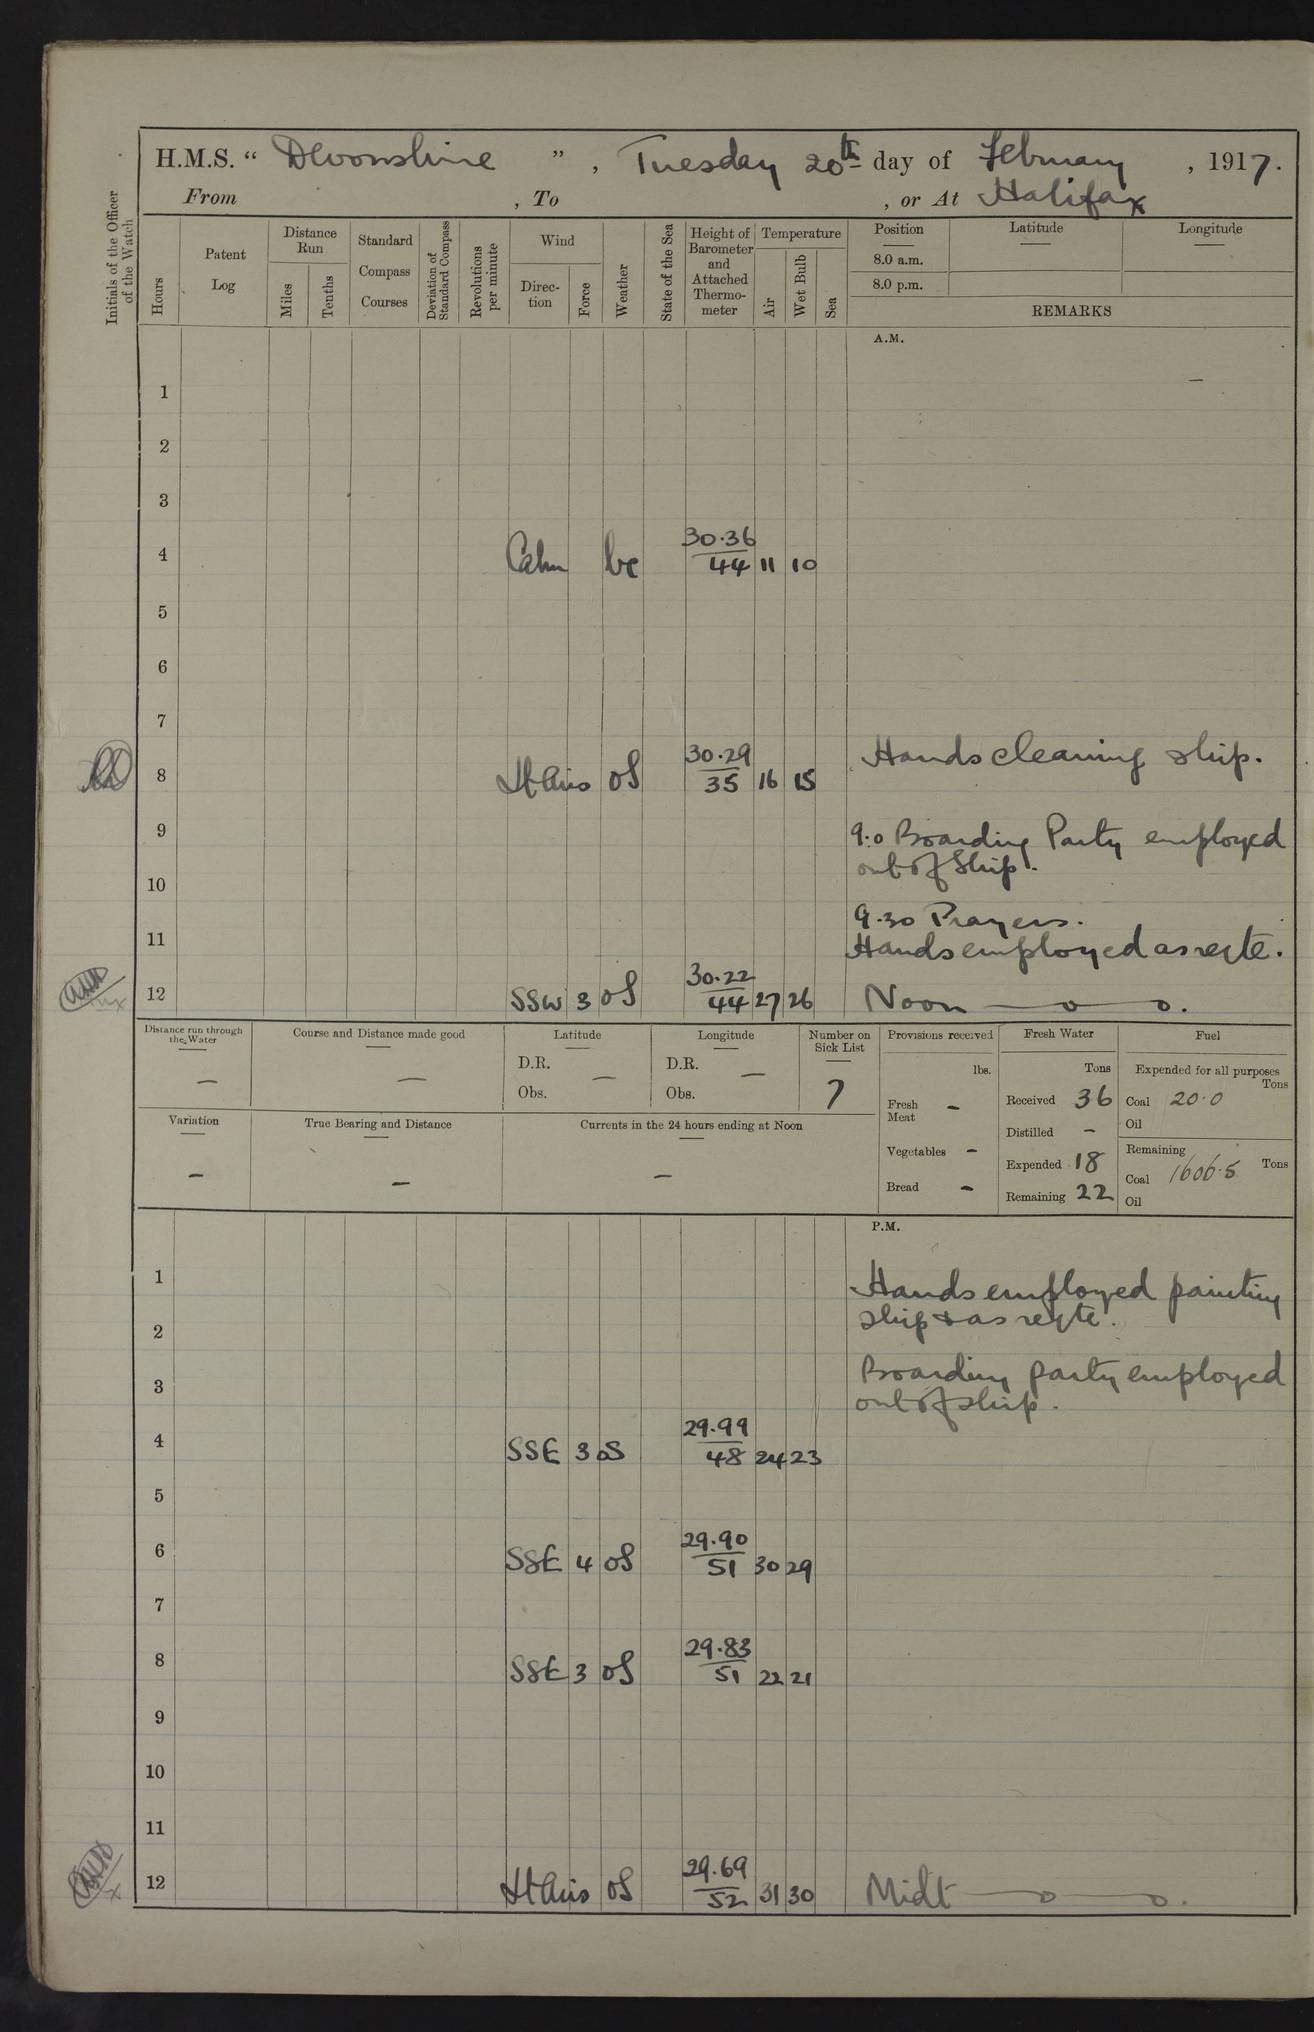 H.M.S. “ Devonshire ” , Tuesday 20th day of February , 1917.
From , To , or At Halifax
Initials of the Officer of the Watch
Hours
Patent Log
Distance Run
Miles
Tenths
Standard Compass Courses
Deviation of Standard Compass
Revolutions per minute
Wind
Direc-tion
Force
Weather
State of the Sea
Height of Barometer and Attached Thermo-meter
Temperature
Air
Wet Bulb
Sea
Position
Latitude
Longitude
8.0 a.m.
8.0 p.m.
REMARKS
A.M.
1
2
3
4 Calm bc 30.36/44 11 10
5
6
7
8 Lt Airs oS 30.29/35 16 15 Hands cleaning ship.
9 9.0 Boarding Party employed
out of Ship.
10
9.30 Prayers.
11 Hands employed as reqte.
12 SSW 3 oS 30.22/44 27 26 Noon —o—o.
Distance run through the Water —
Course and Distance made good —
Latitude
D.R. —
Obs.
Longitude
D.R. —
Obs.
Number on Sick List
7
Provisions received
lbs.
Fresh Meat -
Vegetables -
Bread -
Fresh Water
Tons
Received 36
Distilled -
Expended 18
Remaining 22
Fuel
Expended for all purposes
Tons
Coal 20.0
Oil
Remaining
Coal 1606.5 Tons
Oil
Variation
-
True Bearing and Distance
-
Currents in the 24 hours ending at Noon
-
P.M.
1 Hands employed painting
2 ship & as reqte.
3 Boarding party employed
out of ship.
4 SSE 3 oS 29.99/48 24 23
5
6 SSE 4 oS 29.90/51 30 29
7
8 SSE 3 oS 29.83/51 22 21
9
10
11
12 Lt Airs oS 29.69/52 31 30 Midt —o—o.